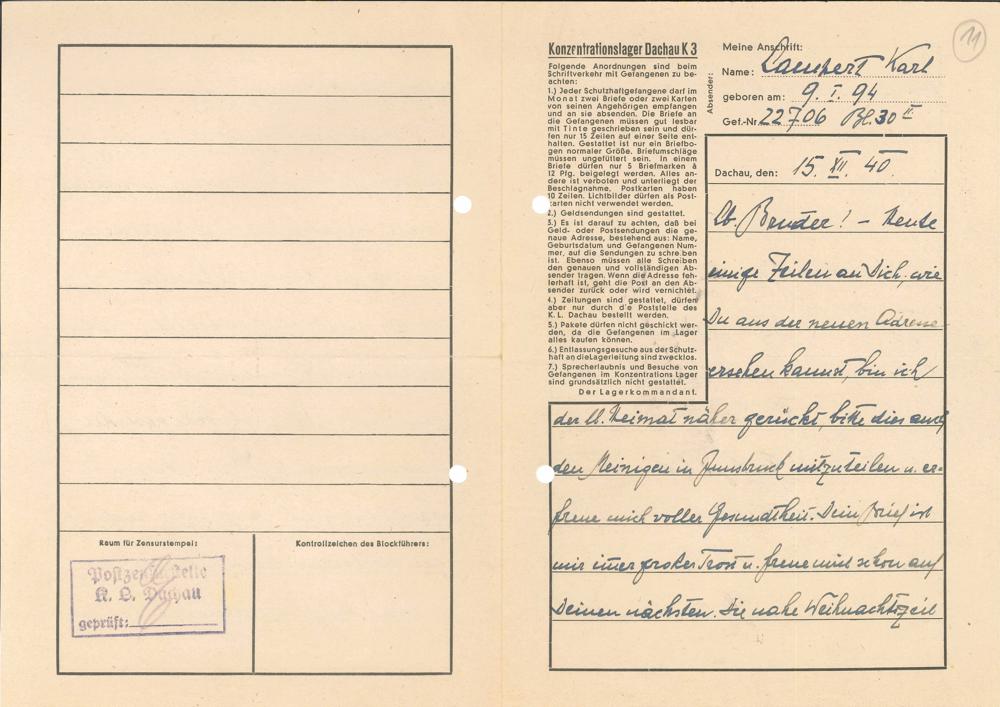 Raum für Zensurstempel:
Postzensurstelle
K. L. Dachau
geprüft:
Kontrollzeichen des Blockführers:
11
Konzentrationslager Dachau K 3
Folgende Anordnungen sind beim
Schriftverkehr mit Gefangenen zu be-
achten:
1.) Jeder Schutzhaftgefangene darf im
Monat zwei Briefe oder zwei Karten
von seinen Angehörigen empfangen
und an sie absenden. Die Briefe an
die Gefangenen müssen gut lesbar
mit Tinte geschrieben sein und dür-
fen nur 15 Zeilen auf einer Seite ent-
halten. Gestattet ist nur ein Briefbo-
gen normaler Größe. Briefumschläge
müssen ungefüttert sein. In einem
Briefe dürfen nur 5 Briefmarken à
12 Pfg. beigelegt werden. Alles an-
dere ist verboten und unterliegt der
Beschlagnahme. Postkarten haben
10 Zeilen. Lichtbilder dürfen als Post-
karten nicht verwendet werden.
2.) Geldsendungen sind gestattet.
3.) Es ist darauf zu achten, daß bei
Geld- oder Postsendungen die ge-
naue Adresse, bestehend aus: Name,
Geburtsdatum und Gefangenen Num-
mer, auf die Sendungen zu schreiben
ist. Ebenso müssen alle Schreiben
den genauen und vollständigen Ab-
sender tragen. Wenn die Adresse feh-
lerhaft ist, geht die Post an den Ab-
sender zurück oder wird vernichtet.
4.) Zeitungen sind gestattet, dürfen
aber nur durch die Poststelle des
K. L. Dachau bestellt werden.
5.) Pakete dürfen nicht geschickt wer-
den, da die Gefangenen im Lager
alles kaufen können.
6.) Entlassungsgesuche aus der Schutz-
haft an die Lagerleitung sind zwecklos.
7.) Sprecherlaubnis und Besuche von
Gefangenen im Konzentrations Lager
sind grundsätzlich nicht gestattet.
Der Lagerkommandant.
Absender:
Meine Anschrift:
Name: Lampert Karl
geboren am: 9. I. 94
Gef.-Nr. 22706 Bl. 30 II
Dachau, den: 15. XII. 40.
Lb. Bruder! – Heute
einige Zeilen an Dich, wie
Du aus der neuen Adresse
ersehen kannst, bin ich
der lb. Heimat näher gerückt, bitte dies auch
den Meinigen in Innsbruck mitzuteilen u. er-
freue mich voller Gesundheit. Dein Brief ist
mir imer großer Trost u. freue mich schon auf
Deinen nächsten. Die nahe Weihnachtszeit